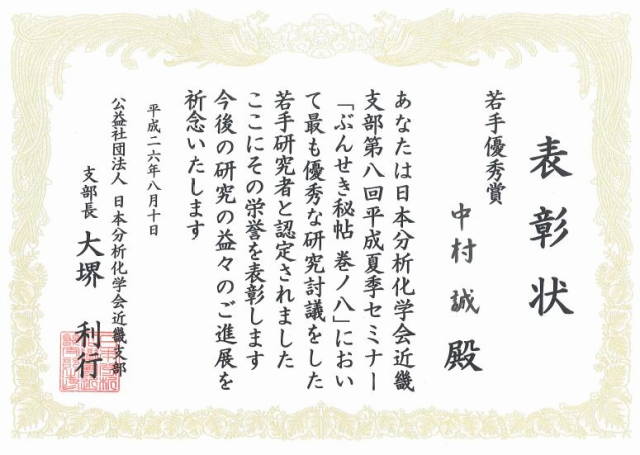 表彰状
若手優秀賞
中村誠 殿
あなたは日本分析化学会近畿
支部第八回平成夏季セミナー
「ぶんせき秘帖 巻ノ八」におい
て最も優秀な研究討議をした
若手研究者と認定されました
ここにその栄誉を表彰します
今後の研究の益々のご進展を
祈念いたします
平成二六年八月十日
公益社団法人 日本分析化学会近畿支部
支部長 大堺 利行